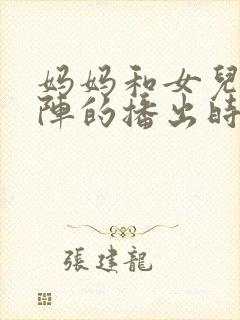 妈妈和女兒
陣的播出時
張建龍